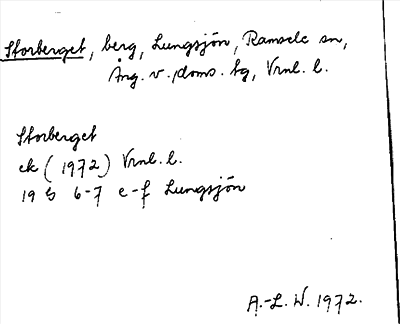 Storberget, berg, Lungsjön, Ramsele sn,
Ång. v. doms. tg, Vrnl. l.
Storberget
ek (1972) Vrnl. l.
19 G 6-7 e-f Lungsjön
A.-L. W. 1972.